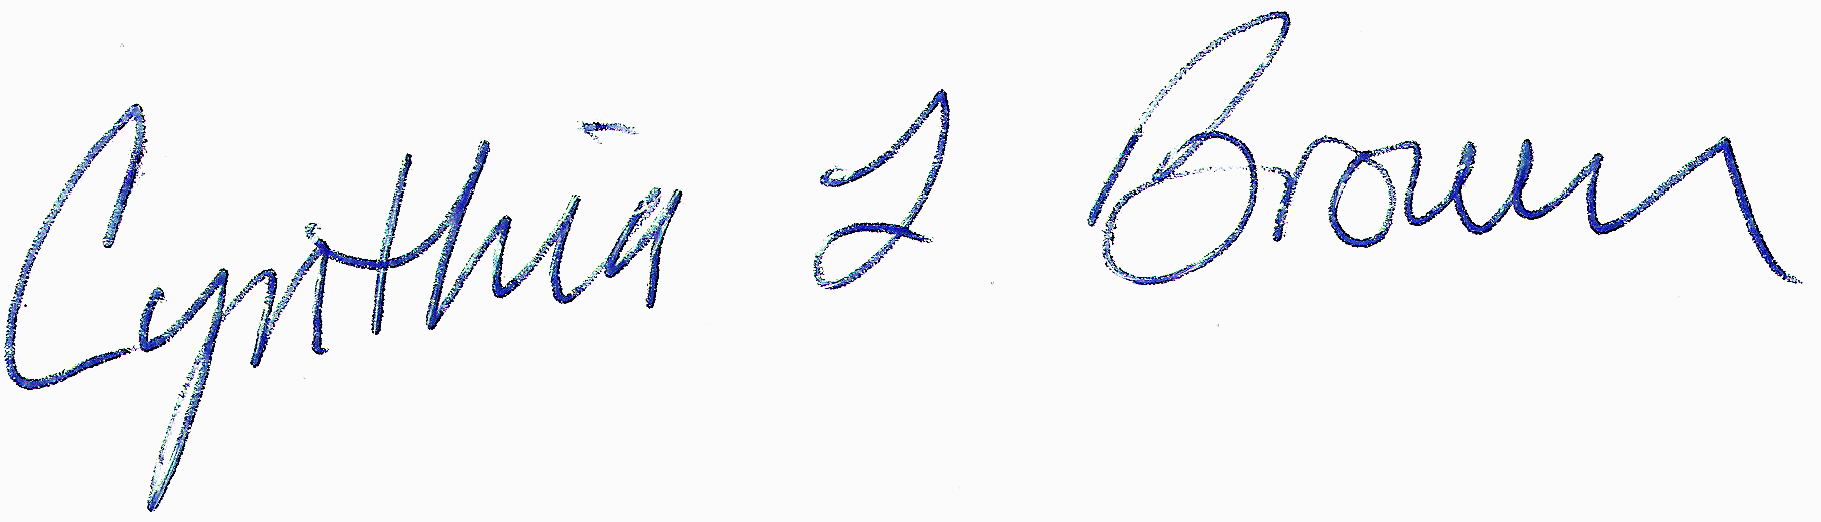 Cynthia L Brown